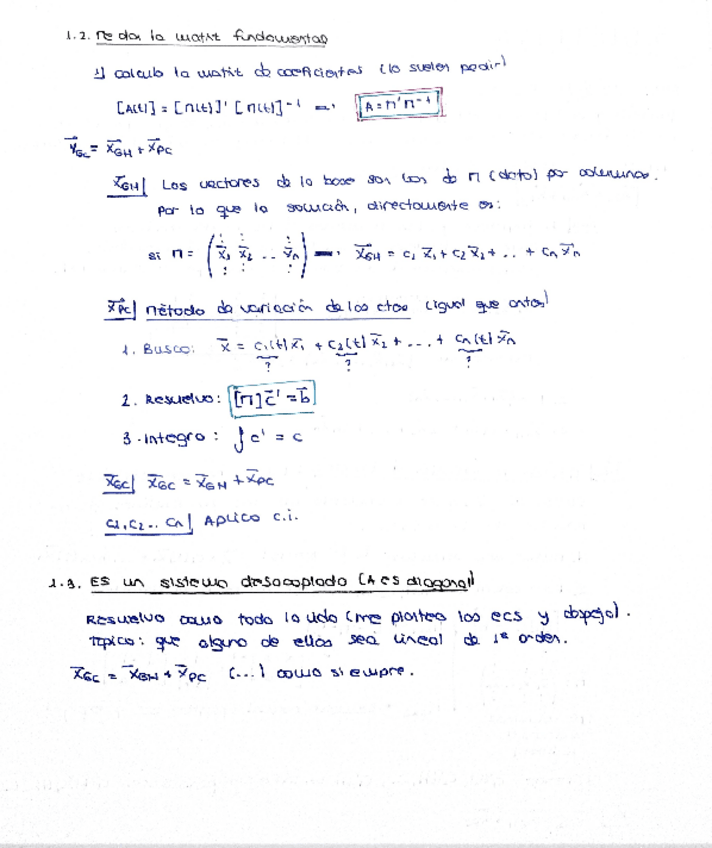 1.2. Me dan la matriz fundamental
1) calculo la matriz de coeficientes (lo suelen pedir)
[A(t)] = [M(t)]' [M(t)]⁻¹ → A = M'M⁻¹
Y⃗GC = X⃗GH + X⃗PC
X⃗GH| Los vectores de la base son los de M (dato) por columnas.
Por lo que la solución, directamente es:
si M = (x⃗₁ x⃗₂ .. x⃗ₙ) → X⃗GH = c₁ x⃗₁ + c₂ x⃗₂ + .. + cₙ x⃗ₙ
X⃗PC| Método de variación de las ctes (igual que antes)
1. Busco: x⃗ = c₁(t) x⃗₁ + c₂(t) x⃗₂ + ... + cₙ(t) x⃗ₙ
? ? ?
2. Resuelvo: [M] c⃗' = b⃗
3. Integro: ∫ c' = c
X⃗GC| X⃗GC = X⃗GH + X⃗PC
C1, C2 .. Cn| Aplico c.i.
1.3. ES un sistema desacoplado (A es diagonal)
Resuelvo como toda la vida (me planteo las ecs y despejo).
Típico: que alguno de ellos sea lineal de 1º orden.
X⃗GC = X⃗GH + X⃗PC (...) como siempre.